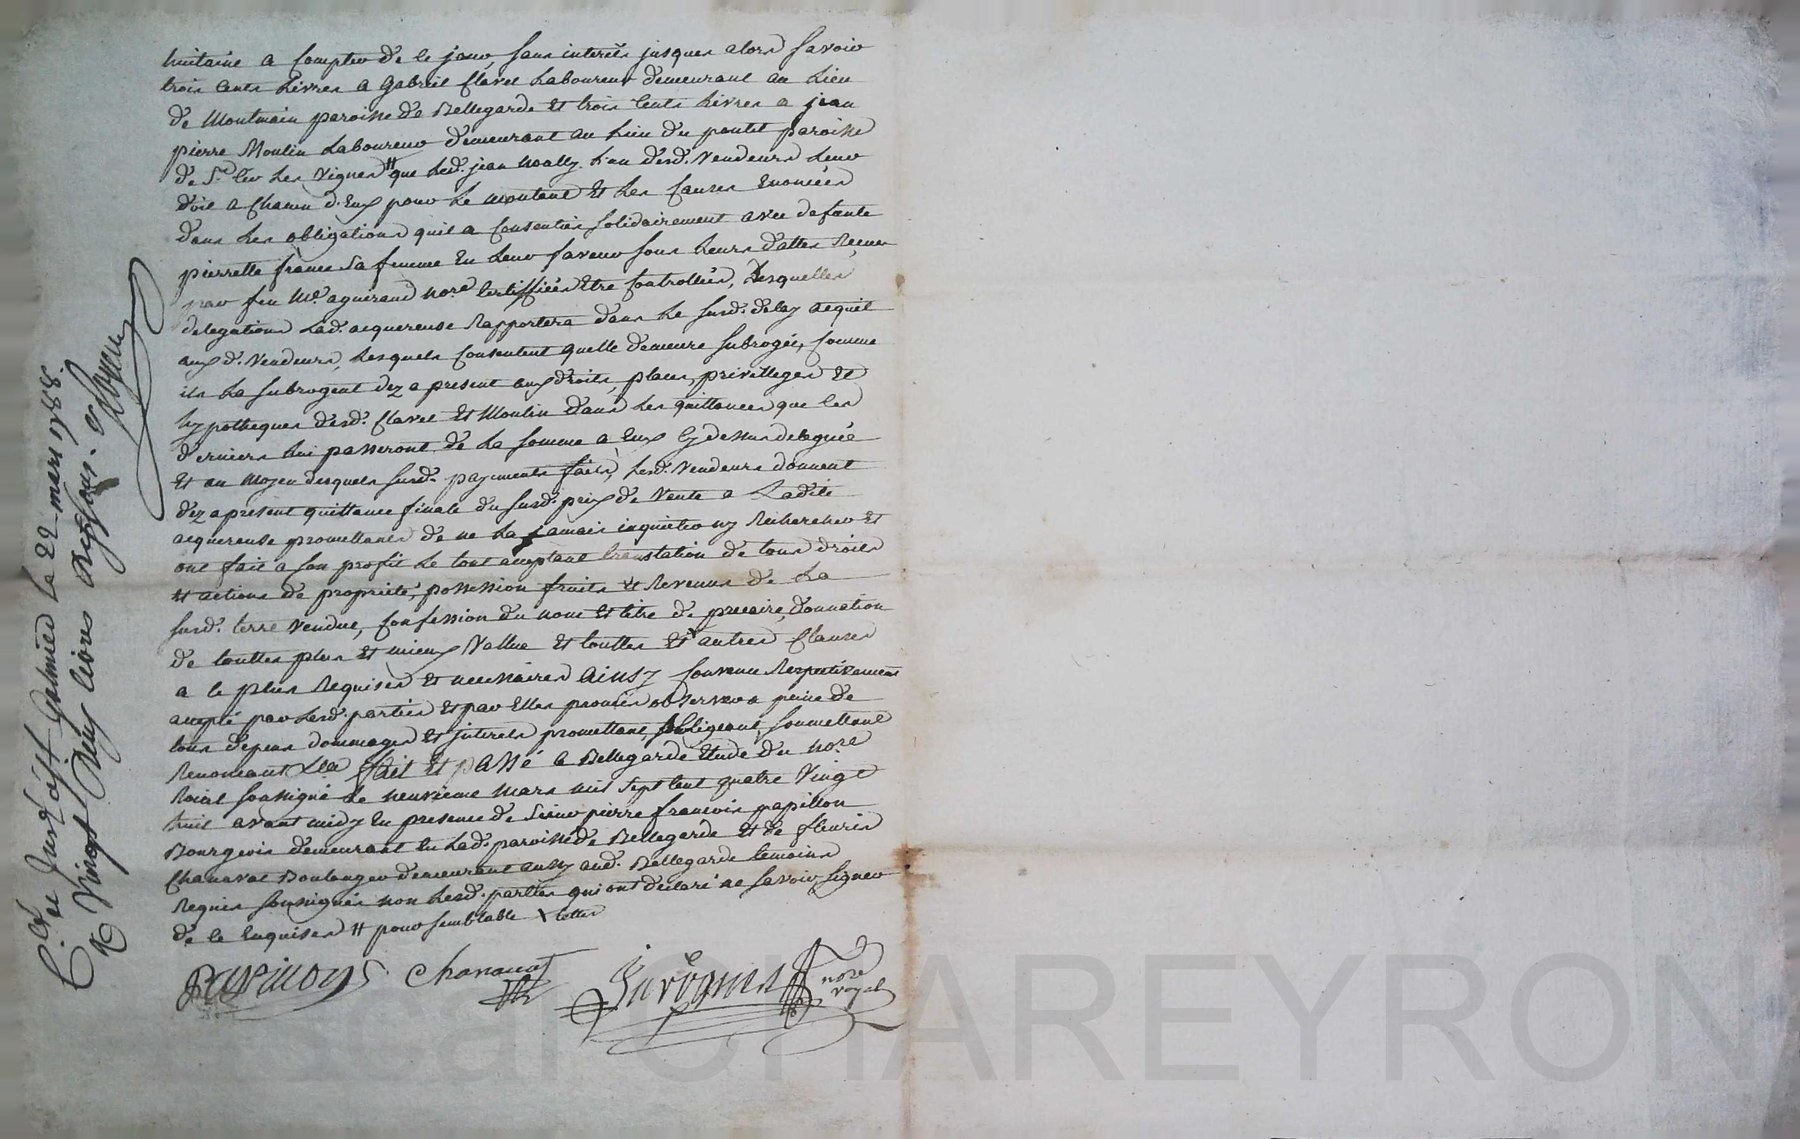 huitaine a Compter de ce jour, sans interêts jusques alors Savoir
trois Cents Livres a Gabriel Clavel Laboureur demeurant au Lieu
de Montmain paroisse de Bellegarde Et trois Cents Livres a jean
pierre Moulin Laboureur demeurant au Lieu du pontet paroisse
de St Cir Les Vignes # que Led. jean Mally L'un desd. Vendeurs Leur
doit a Chacun d'Eux pour Le montant Et Les Causes Enoncées
dans Les obligations quil a Consenties solidairement avec defunte
pierrette france Sa femme En Leur faveur sous Leurs dattes Recues
par feu Me aguerand nore Certiffiées Etre Controllées, Lesquelles
delegations Lad. acquereuse Rapportera dans Le susd. delay acquit
auxd. Vendeurs, Lesquels Consentent quelle demeure subrogée, Comme
ils La subrogent dez a present aux droits, places, privilleges Et
hypotheques desd. Clavel Et Moulin dans Les quittances que Ces
derniers Lui passeront de La somme a Eux Cy dessus deleguée
Et au Moyen desquels susd. payements faits, Lesd. Vendeurs donnent
dez apresent quittance finale du susd. prix de Vente a Ladite
acquereuse promettants de ne La jamais inquieter ny Rechercher Et
ont fait a son profit Le tout acceptant translation de tous droits
Et actions de proprieté, possession fruits Et Revenus de La
susd. terre Vendue, Confession du nom Et titre de precaire, donnation
de touttes plus Et mieux Vallue Et touttes Et autres Clauses
a Ce plus Requises Et necessaires Ainsy Convenu Respectivement
accepté par Lesd. parties Et par Elles promis observer a peine de
tous depens dommages Et interets promettant, obligeant, soumettant
Renonceant &ca Fait Et passé a Bellegarde Etude du nore
Roial soussigné Le neuvieme Mars mil sept Cent quatre Vingt
huit avant midy En presence de Sieur pierre francois papillon
Bourgeois demeurant En Lad. paroisse de Bellegarde Et de fleuris
Chanavat Boulanger demeurant aussy aud. Bellegarde temoins
Requis soussignés non Lesd. parties qui ont declaré ne Savoir signer
de Ce Enquises # pour semblable
Papillon Chanavat
nore
royal
Galmier Le 22 mars 1788.
Vingt Neuf livres dix sous.
Pascal CHAREYRON